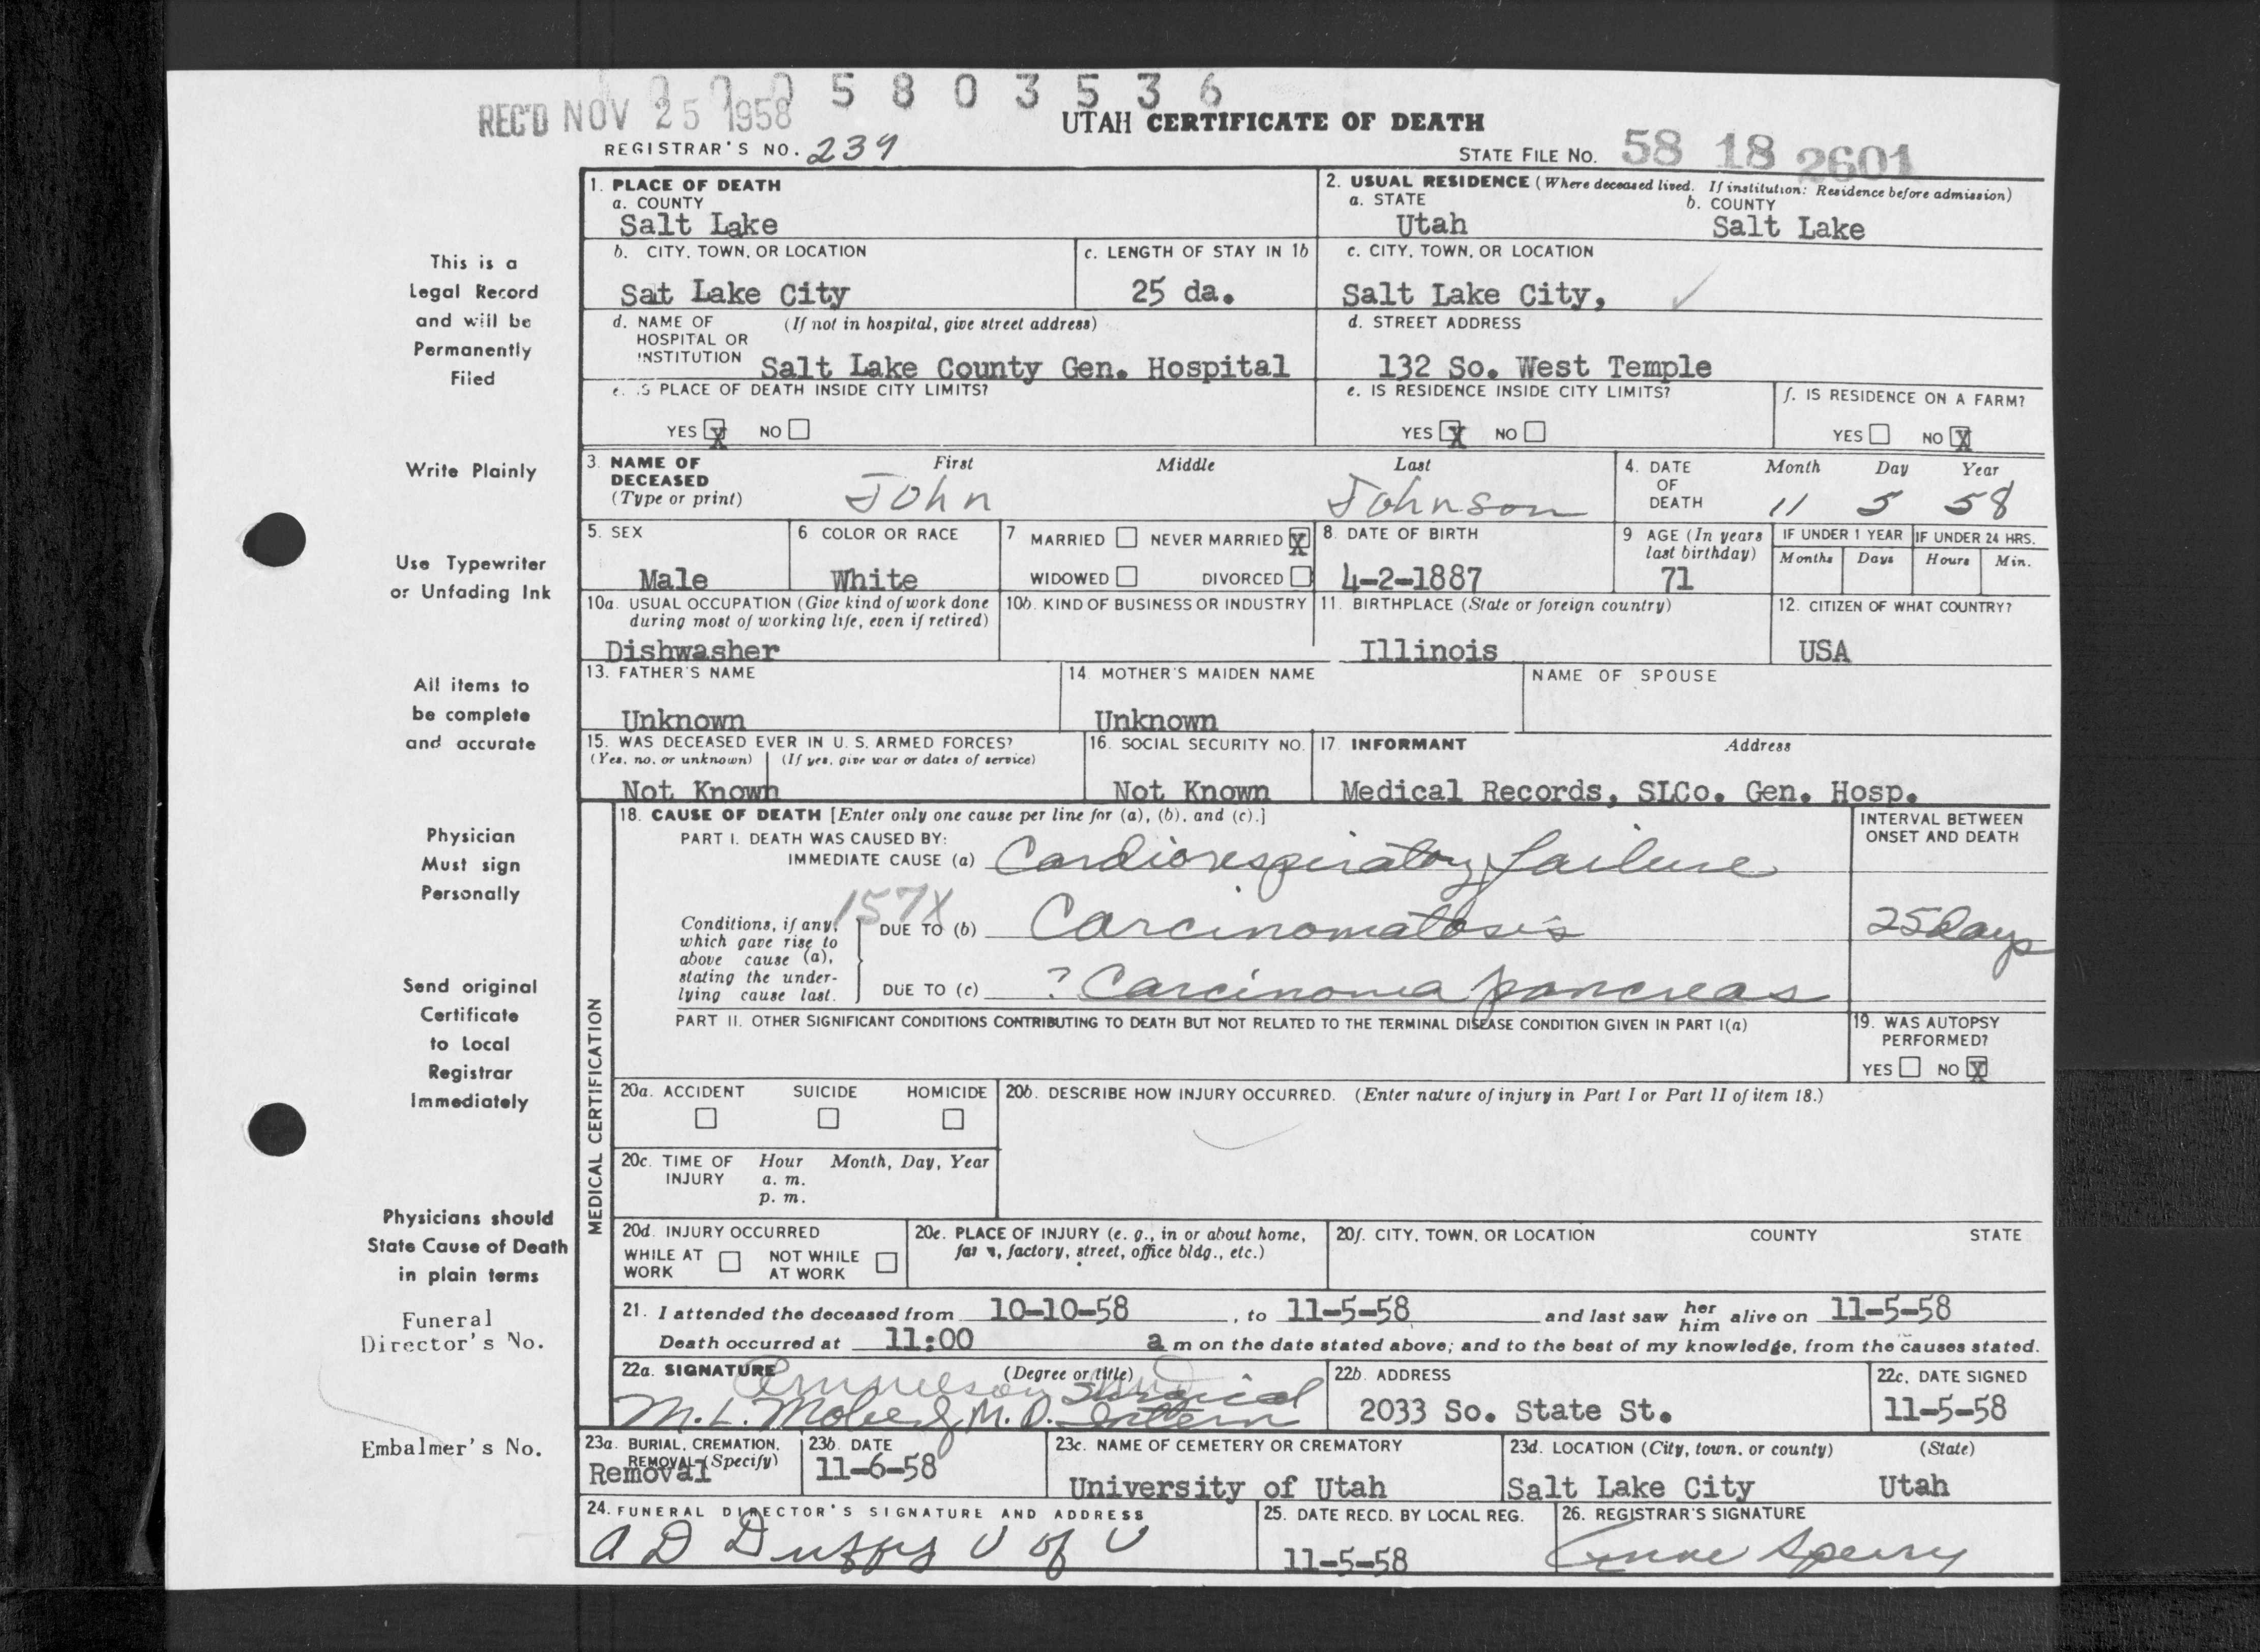 5 8 0 3 5 3 6
REC'D NOV 25 1958
UTAH CERTIFICATE OF DEATH
REGISTRAR'S NO. 239
STATE FILE NO. 58 18 2601
1. PLACE OF DEATH
a. COUNTY
Salt Lake
2. USUAL RESIDENCE (Where deceased lived. If institution: Residence before admission)
a. STATE b. COUNTY
Utah Salt Lake
b. CITY, TOWN, OR LOCATION
Sat Lake City
c. LENGTH OF STAY IN 1b
25 da.
c. CITY, TOWN, OR LOCATION
Salt Lake City,
d. NAME OF (If not in hospital, give street address)
HOSPITAL OR
INSTITUTION Salt Lake County Gen. Hospital
d. STREET ADDRESS
132 So. West Temple
e. IS PLACE OF DEATH INSIDE CITY LIMITS?
YES X NO
e. IS RESIDENCE INSIDE CITY LIMITS?
YES X NO
f. IS RESIDENCE ON A FARM?
YES NO X
3. NAME OF First Middle Last
DECEASED
(Type or print) John Johnson
4. DATE Month Day Year
OF
DEATH 11 5 58
5. SEX
Male
6 COLOR OR RACE
White
7 MARRIED NEVER MARRIED X
WIDOWED DIVORCED
8. DATE OF BIRTH
4-2-1887
9 AGE (In years
last birthday)
71
IF UNDER 1 YEAR IF UNDER 24 HRS.
Months Days Hours Min.
10a. USUAL OCCUPATION (Give kind of work done
during most of working life, even if retired)
Dishwasher
10b. KIND OF BUSINESS OR INDUSTRY
11. BIRTHPLACE (State or foreign country)
Illinois
12. CITIZEN OF WHAT COUNTRY?
USA
13. FATHER'S NAME
Unknown
14. MOTHER'S MAIDEN NAME
Unknown
NAME OF SPOUSE
15. WAS DECEASED EVER IN U. S. ARMED FORCES?
(Yes, no, or unknown) (If yes, give war or dates of service)
Not Known
16. SOCIAL SECURITY NO.
Not Known
17. INFORMANT Address
Medical Records, SLCo. Gen. Hosp.
MEDICAL CERTIFICATION
18. CAUSE OF DEATH [Enter only one cause per line for (a), (b), and (c).]
PART I. DEATH WAS CAUSED BY:
IMMEDIATE CAUSE (a) Cardiorespiratory failure
INTERVAL BETWEEN
ONSET AND DEATH
157X
Conditions, if any,
which gave rise to
above cause (a),
stating the under-
lying cause last.
DUE TO (b) Carcinomatosis
25 days
DUE TO (c) ? Carcinoma pancreas
PART II. OTHER SIGNIFICANT CONDITIONS CONTRIBUTING TO DEATH BUT NOT RELATED TO THE TERMINAL DISEASE CONDITION GIVEN IN PART I(a)
19. WAS AUTOPSY
PERFORMED?
YES NO X
20a. ACCIDENT SUICIDE HOMICIDE
20b. DESCRIBE HOW INJURY OCCURRED. (Enter nature of injury in Part I or Part II of item 18.)
20c. TIME OF Hour Month, Day, Year
INJURY a. m.
p. m.
20d. INJURY OCCURRED
WHILE AT NOT WHILE
WORK AT WORK
20e. PLACE OF INJURY (e. g., in or about home,
farm, factory, street, office bldg., etc.)
20f. CITY, TOWN, OR LOCATION COUNTY STATE
21. I attended the deceased from 10-10-58, to 11-5-58 and last saw her him alive on 11-5-58
Death occurred at 11:00 a m on the date stated above; and to the best of my knowledge, from the causes stated.
22a. SIGNATURE (Degree or title)
M. L. M.D. Surgical Intern
22b. ADDRESS
2033 So. State St.
22c. DATE SIGNED
11-5-58
23a. BURIAL, CREMATION,
REMOVAL (Specify)
Removal
23b. DATE
11-6-58
23c. NAME OF CEMETERY OR CREMATORY
University of Utah
23d. LOCATION (City, town, or county) (State)
Salt Lake City Utah
24. FUNERAL DIRECTOR'S SIGNATURE AND ADDRESS
A D U of U
25. DATE RECD. BY LOCAL REG.
11-5-58
26. REGISTRAR'S SIGNATURE
Sperry
This is a
Legal Record
and will be
Permanently
Filed
Write Plainly
Use Typewriter
or Unfading Ink
All items to
be complete
and accurate
Physician
Must sign
Personally
Send original
Certificate
to Local
Registrar
Immediately
Physicians should
State Cause of Death
in plain terms
Funeral
Director's No.
Embalmer's No.